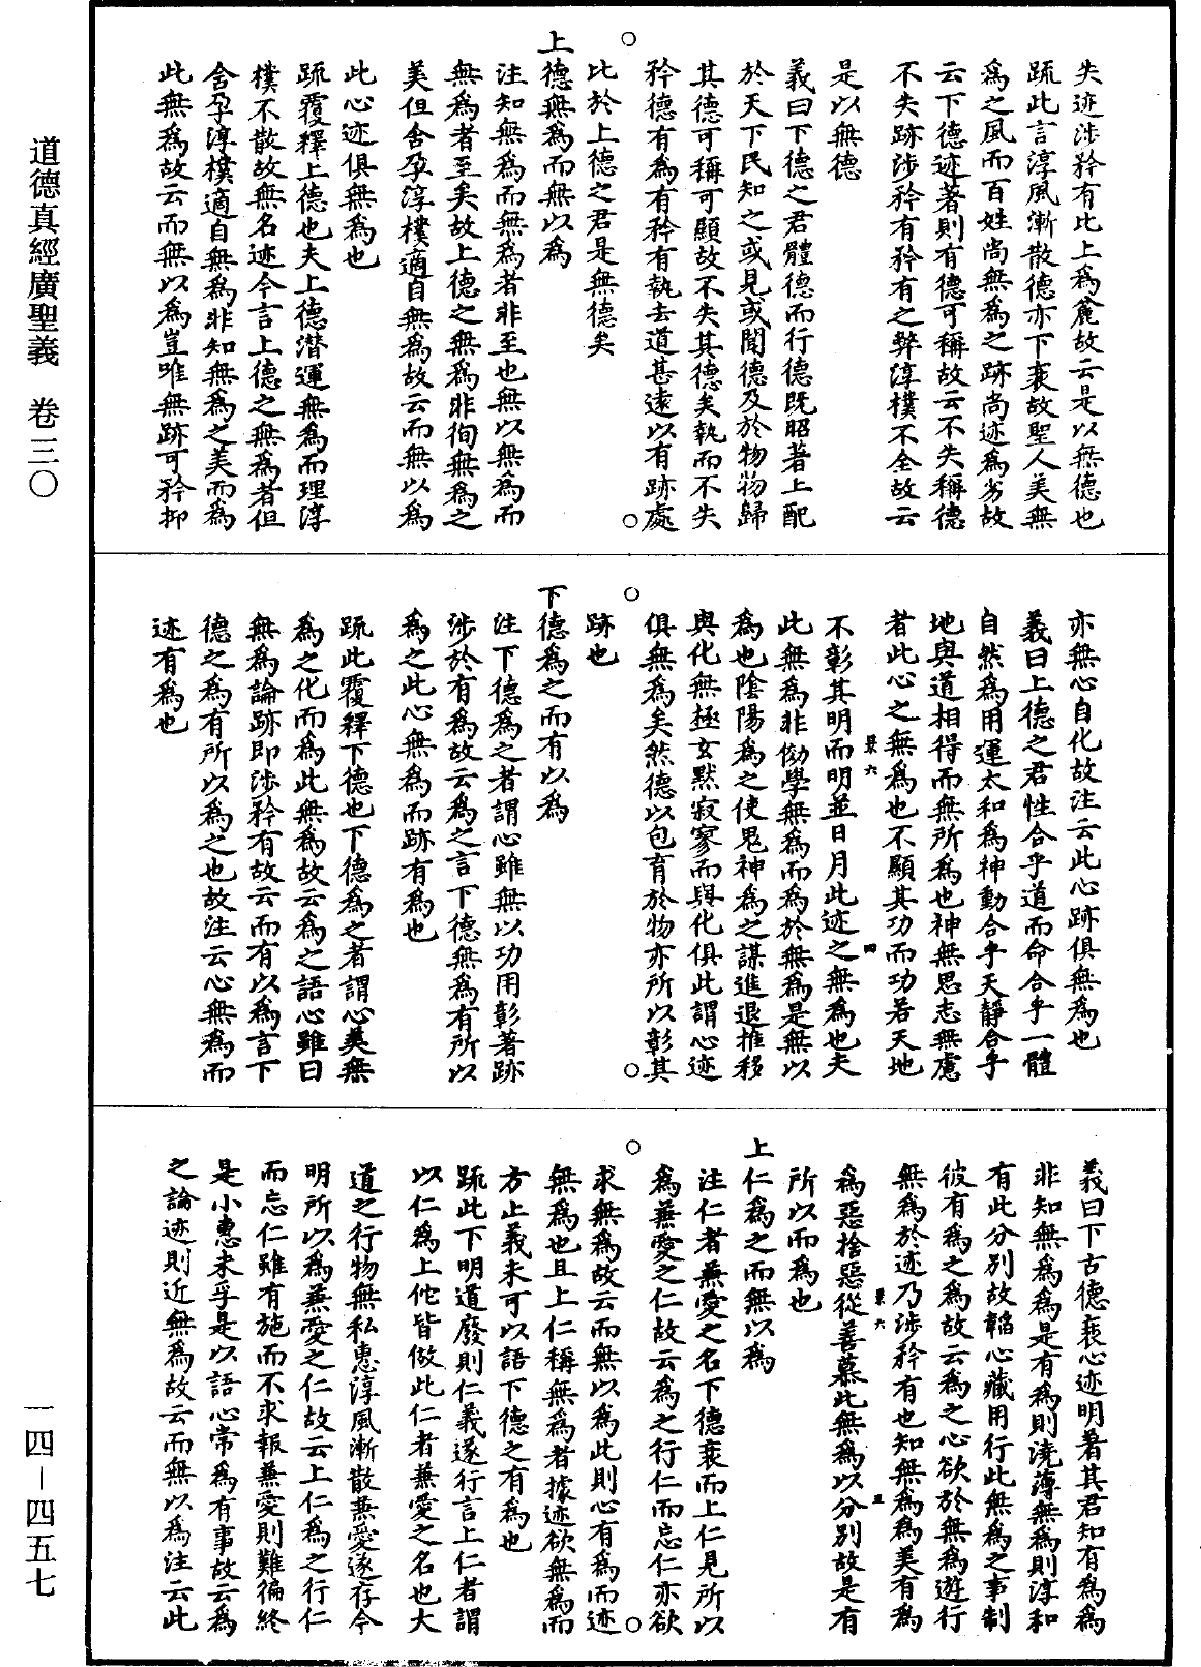 失迹涉矜有比上爲麄故云是以無德也
疏此言淳風漸散德亦下衰故聖人美無
爲之風而百姓尚無爲之跡尚迹爲劣故
云下德迹著則有德可稱故云不失稱德
不失跡涉矜有矜有之弊淳樸不全故云
是以無德
義曰下德之君體德而行德既昭著上配
於天下民知之或見或聞德及於物物歸
其德可稱可顯故不失其德矣執而不失
矜德有爲有矜有執去道甚遠以有跡處
比於上德之君是無德矣
上德無爲而無以爲
注知無爲而無爲者非至也無以無爲而
無爲者至矣故上德之無爲非徇無爲之
美但含孕淳樸適自無爲故云而無以爲
此心迹俱無爲也
疏覆釋上德也夫上德潛運無爲而理淳
樸不散故無名迹今言上德之無爲者但
含孕淳樸適自無爲非知無爲之美而爲
此無爲故云而無以爲豈唯無跡可矜抑
亦無心自化故注云此心跡俱無爲也
義曰上德之君性合乎道而命合乎一體
自然爲用運太和爲神動合乎天靜合乎
地與道相得而無所爲也神無思志無慮
者此心之無爲也不顯其功而功若天地
不彰其明而明並日月此迹之無爲也夫
此無爲非傚學無爲而爲於無爲是無以
爲也陰陽爲之使鬼神爲之謀進退推移
與化無極玄默寂寥而與化俱此謂心迹
俱無爲矣然德以包育於物亦所以彰其
跡也
下德爲之而有以爲
注下德爲之者謂心雖無以功用彰著跡
涉於有爲故云爲之言下德無爲有所以
爲之此心無爲而跡有爲也
疏此覆釋下德也下德爲之者謂心美無
爲之化而爲此無爲故云爲之語心雖曰
無爲論跡即涉矜有故云而有以爲言下
德之爲有所以爲之也故注云心無爲而
迹有爲也
義曰下古德衰心迹明著其君知有爲爲
非知無爲爲是有爲則澆薄無爲則淳和
有此分別故韜心藏用行此無爲之事制
彼有爲之爲故云爲之心欲於無爲遊行
無爲於迹乃涉矜有也知無爲爲美有爲
爲惡捨惡從善慕此無爲以分別故是有
所以而爲也
上仁爲之而無以爲
注仁者兼愛之名下德衰而上仁見所以
爲兼愛之仁故云爲之行仁而忘仁亦欲
求無爲故云而無以爲此則心有爲而迹
無爲也且上仁稱無爲者據迹欲無爲而
方止義未可以語下德之有爲也
疏此下明道廢則仁義遂行言上仁者謂
以仁爲上佗皆倣此仁者兼愛之名也大
道之行物無私惠淳風漸散兼愛遂存今
明所以爲兼愛之仁故云上仁爲之行仁
而忘仁雖有施而不求報兼愛則難徧終
是小惠未孚是以語心常爲有事故云爲
之論迹則近無爲故云而無以爲注云此
景六
四
景六
五
道德真經廣聖義　卷三〇
一四－四五七